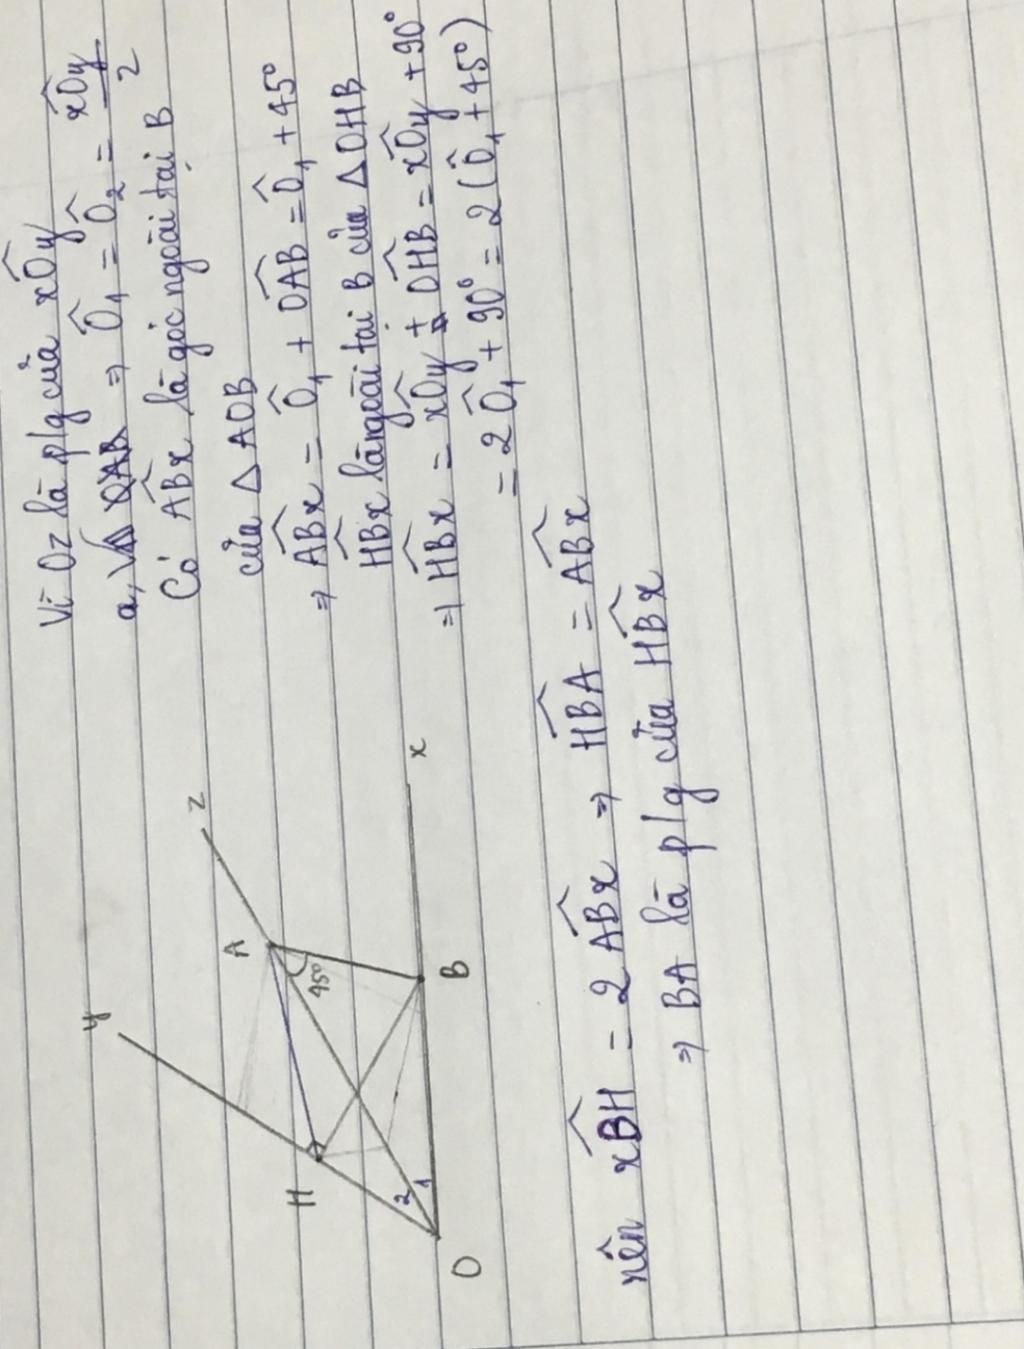 Vì Oz là p/g của xÔy
a, ⇒ Ô₁ = Ô₂ = xÔy/2
Có ABx̂ là góc ngoài tại B
của △AOB
⇒ ABx̂ = Ô₁ + OAB̂ = Ô₁ + 45°
HBx̂ là ngoài tại B của △OHB
⇒ HBx̂ = xÔy + OHB̂ = xÔy + 90°
= 2Ô₁ + 90° = 2(Ô₁ + 45°)
nên xBĤ = 2ABx̂ ⇒ HBÂ = ABx̂
⇒ BA là p/g của HBx̂
y
z
A
45°
H
2
1
O
B
x